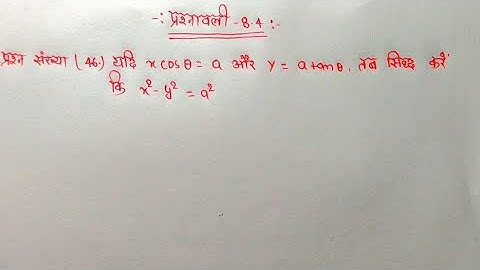 -: प्रश्नावली - 8.4 :-
प्रश्न संख्या (46.) यदि x cos θ = a और y = a tan θ, तब सिद्ध करें
कि x² - y² = a²